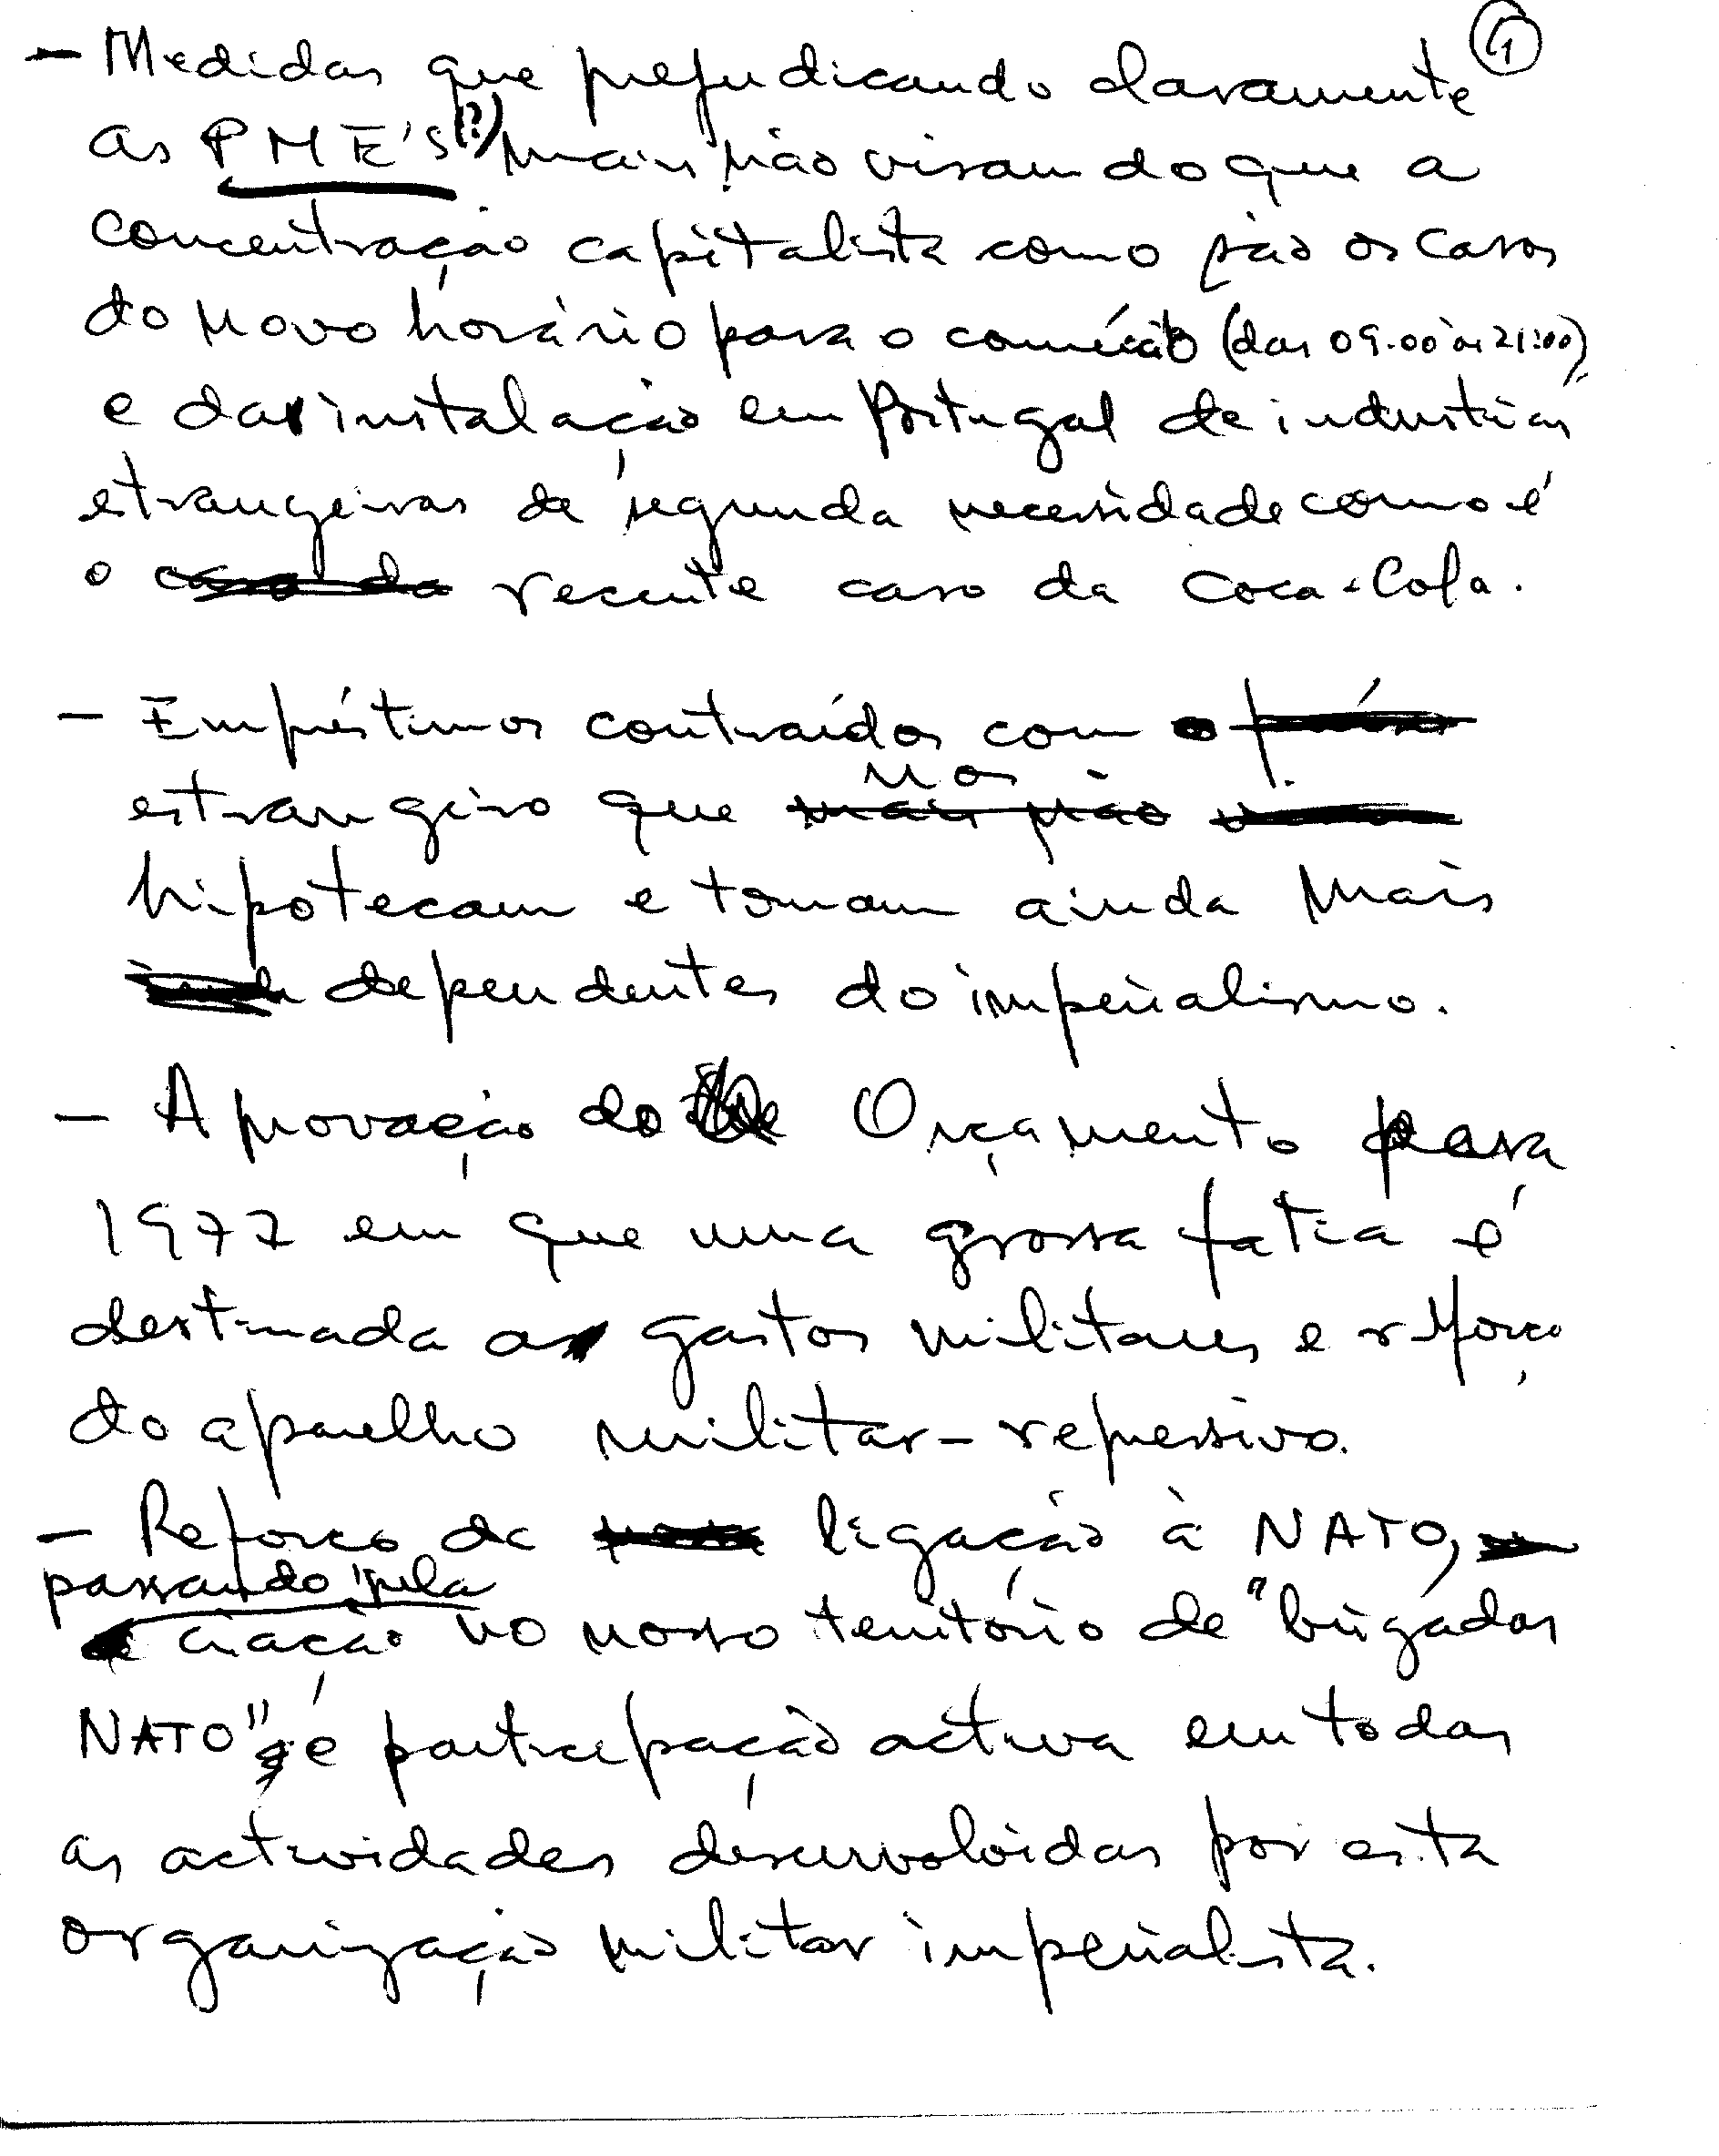 1
- Medidas que prejudicando claramente
as PME's (?) mais não visam do que a
concentração capitalista como são os casos
do novo horário para o comércio (das 09.00 às 21:00)
e da instalação em Portugal de industrias
etrangeiras de segunda necessidade como é
o caso da recente caso da Coca-Cola.
- Empréstimos contraídos com o
nos
estrangeiro que mais não
hipotecam e tornam ainda mais
dependentes do imperialismo.
- Aprovação do Orçamento para
1977 em que uma grossa fatia é
destinada a gastos militares e reforço
do aparelho militar-repressivo.
- Reforço da ligação à NATO,
passando pela
criação no nosso território de "brigadas
NATO" e participação activa em todas
as actividades desenvolvidas por esta
organização militar imperialista.